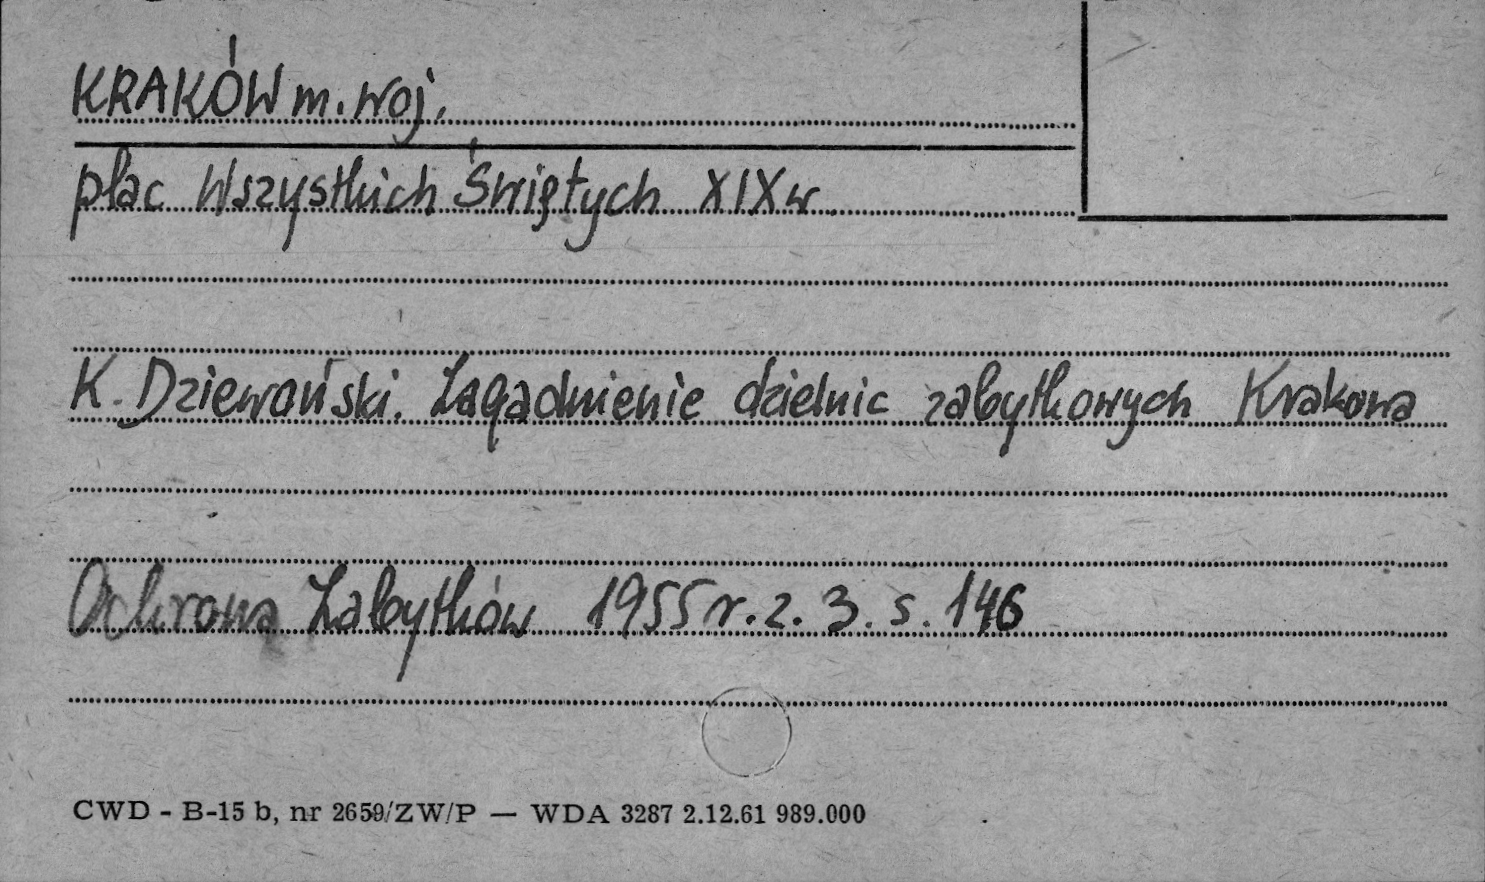 KRAKÓW m. woj.
plac Wszystkich Świętych XIX w.
K. Dziewoński. Zagadnienie dzielnic zabytkowych Krakowa
Ochrona Zabytków 1955 r. z. 3. s. 146
CWD - B-15 b, nr 2659/ZW/P — WDA 3287 2.12.61 989.000